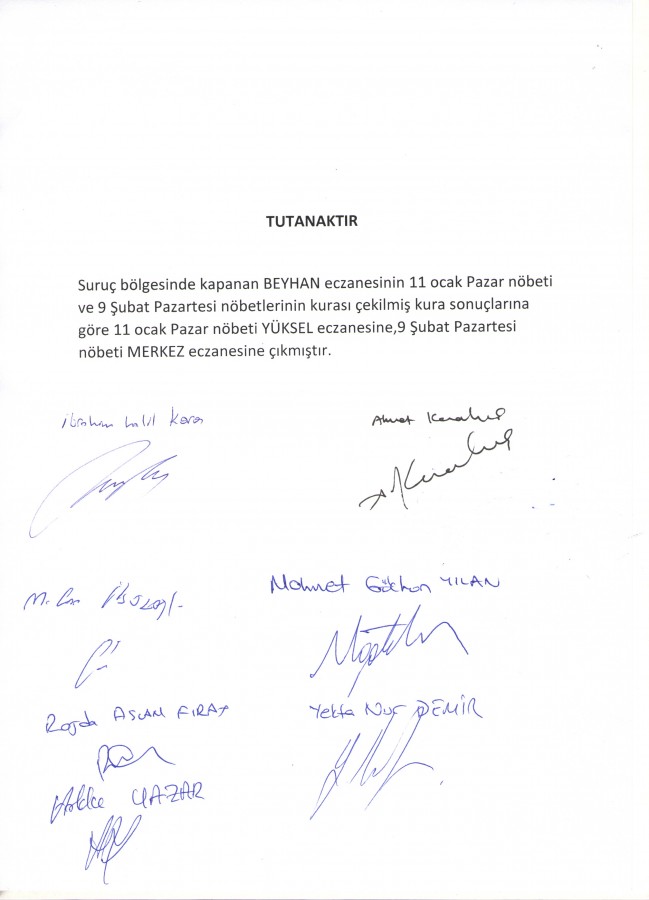 TUTANAKTIR
Suruç bölgesinde kapanan BEYHAN eczanesinin 11 ocak Pazar nöbeti
ve 9 Şubat Pazartesi nöbetlerinin kurası çekilmiş kura sonuçlarına
göre 11 ocak Pazar nöbeti YÜKSEL eczanesine,9 Şubat Pazartesi
nöbeti MERKEZ eczanesine çıkmıştır.
İbrahim halil Kara
Ahmet
M. Can
Mehmet Gökhan YILAN
Rojda ASLAN FIRAT
Yekta Nur DEMİR
YAZAR